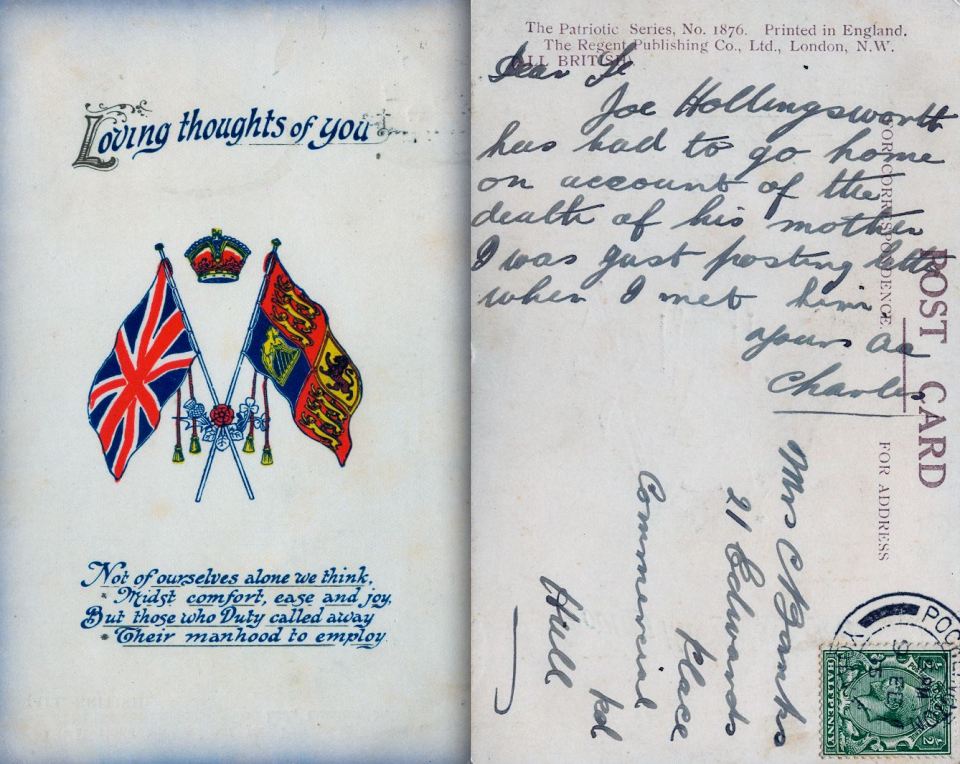 Loving thoughts of you
Not of ourselves alone we think,
Midst comfort, ease and joy,
But those who Duty called away
Their manhood to employ.
The Patriotic Series, No. 1876. Printed in England.
The Regent Publishing Co., Ltd., London, N.W.
ALL BRITISH
Dear
Joe Hollingsworth
has had to go home
on account of the
death of his mother
I was just posting letter
when I met him
yours
Charles
POST CARD
FOR CORRESPONDENCE.
FOR ADDRESS
Mrs C Banks
21 Edwards
place
Commercial
Rd
Hull
HALFPENNY